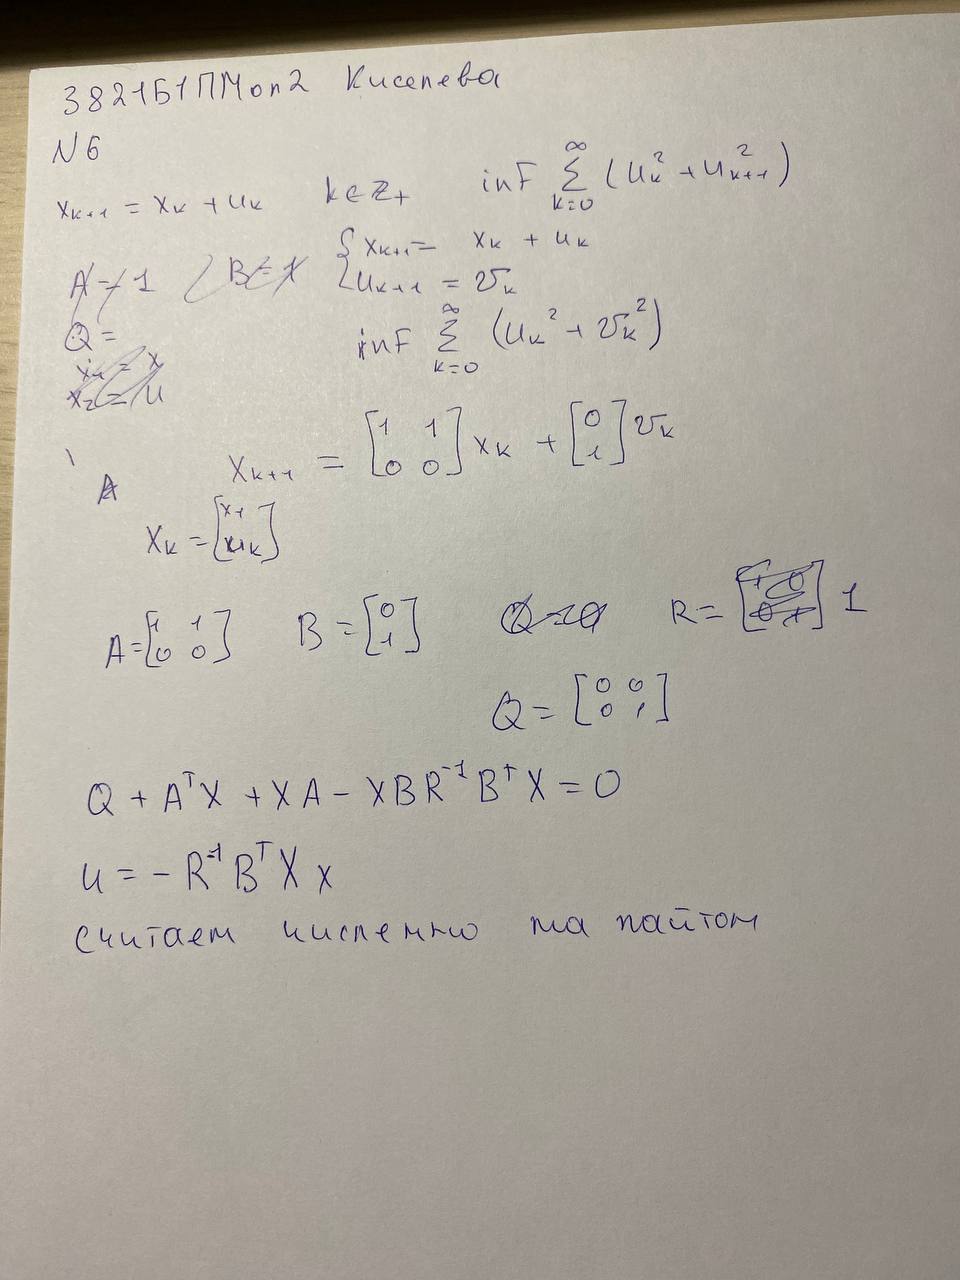 3821Б1ПМоп2 Киселева
N6
x_{k+1} = x_k + u_k k ∈ Z_+ inf ∑_{k=0}^{∞} (u_k^2 + u_{k+1}^2)
{ x_{k+1} = x_k + u_k
A = 1 B = 1 { u_{k+1} = v_k
Q =
inf ∑_{k=0}^{∞} (u_k^2 + v_k^2)
x_1 = x
x_2 = u
x_{k+1} = [1 1; 0 0] x_k + [0; 1] v_k
A
x_k = [x_1; u_k]
A = [1 1; 0 0] B = [0; 1] Q = 0 R = 1
Q = [0 0; 0 1]
Q + A^T X + X A - X B R^{-1} B^T X = 0
u = - R^{-1} B^T X x
считаем численно на пайтом